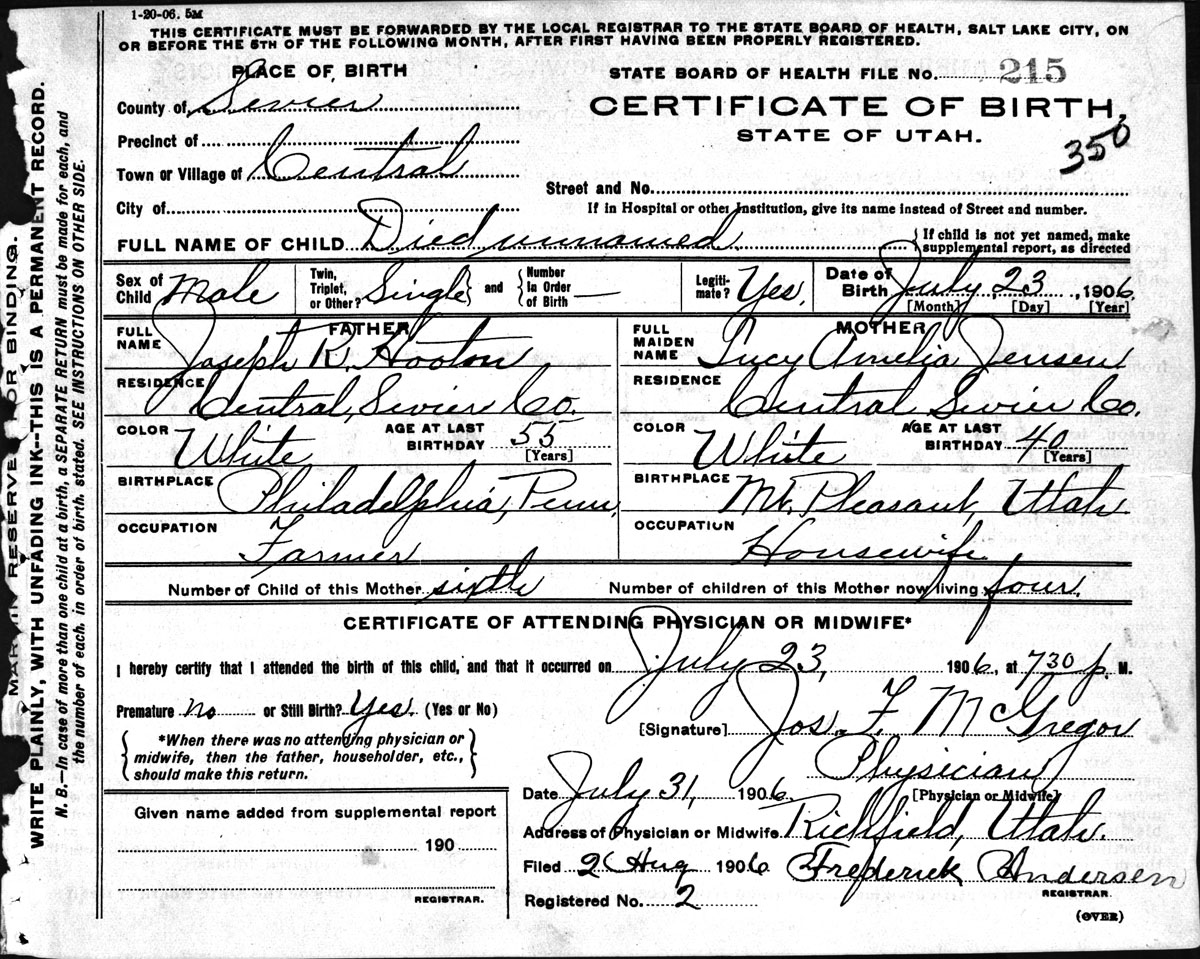 1-20-06. 5M
THIS CERTIFICATE MUST BE FORWARDED BY THE LOCAL REGISTRAR TO THE STATE BOARD OF HEALTH, SALT LAKE CITY, ON
OR BEFORE THE 5TH OF THE FOLLOWING MONTH, AFTER FIRST HAVING BEEN PROPERLY REGISTERED.
PLACE OF BIRTH
STATE BOARD OF HEALTH FILE NO. 215
County of Sevier
CERTIFICATE OF BIRTH,
STATE OF UTAH.
350
Precinct of
Town or Village of Central
Street and No.
City of
If in Hospital or other Institution, give its name instead of Street and number.
FULL NAME OF CHILD Died unnamed { If child is not yet named, make supplemental report, as directed
Sex of Child Male Twin, Triplet, or Other? Single } and { Number In Order of Birth — Legitimate? Yes. Date of Birth July 23, 1906.
[Month] [Day] [Year]
FATHER
FULL NAME Joseph R. Hooton
RESIDENCE Central, Sevier Co.
COLOR White AGE AT LAST BIRTHDAY 55 [Years]
BIRTHPLACE Philadelphia, Penn.
OCCUPATION Farmer
MOTHER
FULL MAIDEN NAME Lucy Amelia Jensen
RESIDENCE Central Sevier Co.
COLOR White AGE AT LAST BIRTHDAY 40 [Years]
BIRTHPLACE Mt. Pleasant, Utah
OCCUPATION Housewife
Number of Child of this Mother sixth Number of children of this Mother now living four.
CERTIFICATE OF ATTENDING PHYSICIAN OR MIDWIFE*
I hereby certify that I attended the birth of this child, and that it occurred on July 23, 1906, at 7 30 p. M.
Premature no or Still Birth? Yes. (Yes or No)
[Signature] Jos. F. McGregor
*When there was no attending physician or
midwife, then the father, householder, etc.,
should make this return.
Physician
[Physician or Midwife]
Date July 31, 1906.
Given name added from supplemental report
190
REGISTRAR.
Address of Physician or Midwife Richfield, Utah.
Filed 2 Aug 1906 Frederick Andersen
REGISTRAR.
Registered No. 2
(OVER)
MARGIN RESERVED FOR BINDING.
WRITE PLAINLY, WITH UNFADING INK--THIS IS A PERMANENT RECORD.
N. B.—In case of more than one child at a birth, a SEPARATE RETURN must be made for each, and
the number of each, in order of birth, stated. SEE INSTRUCTIONS ON OTHER SIDE.